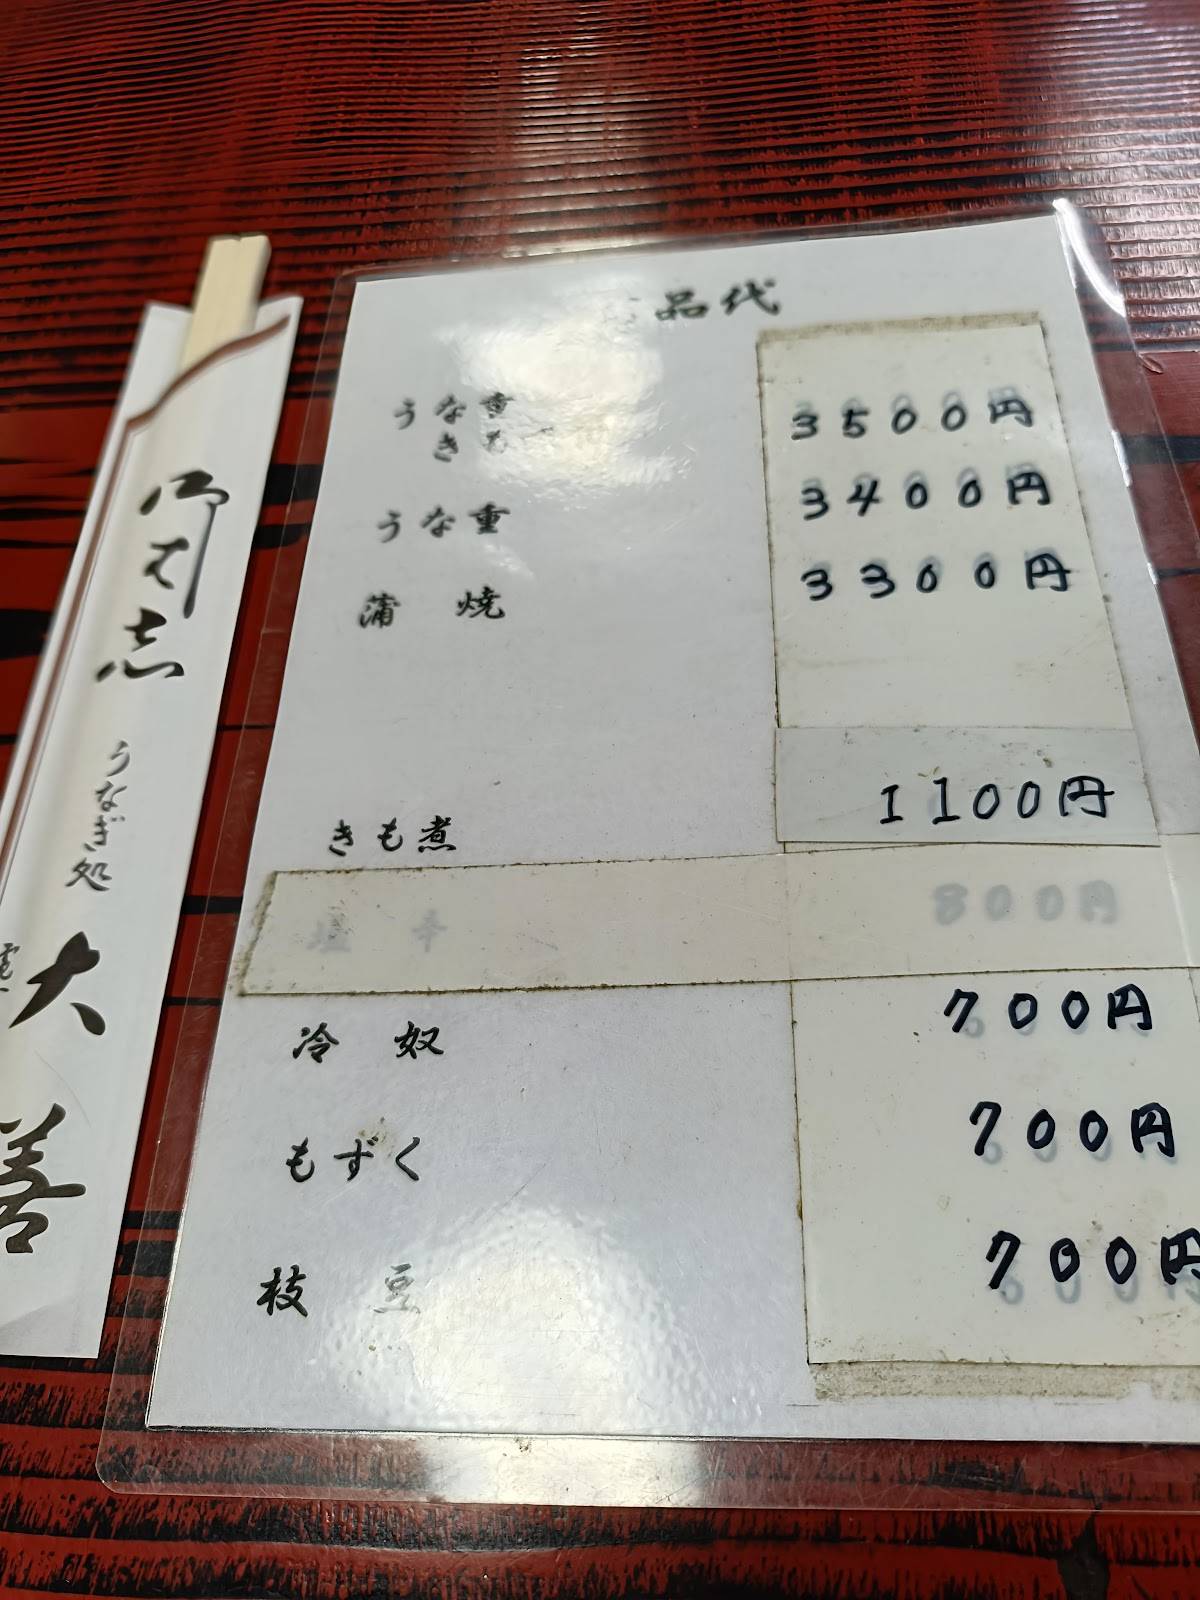 御はし
うなぎ処
大善
品代
うな重 3500円
きも
うな重 3400円
蒲焼 3300円
きも煮 1100円
塩辛 800円
冷奴 700円
もずく 700円
枝豆 700円